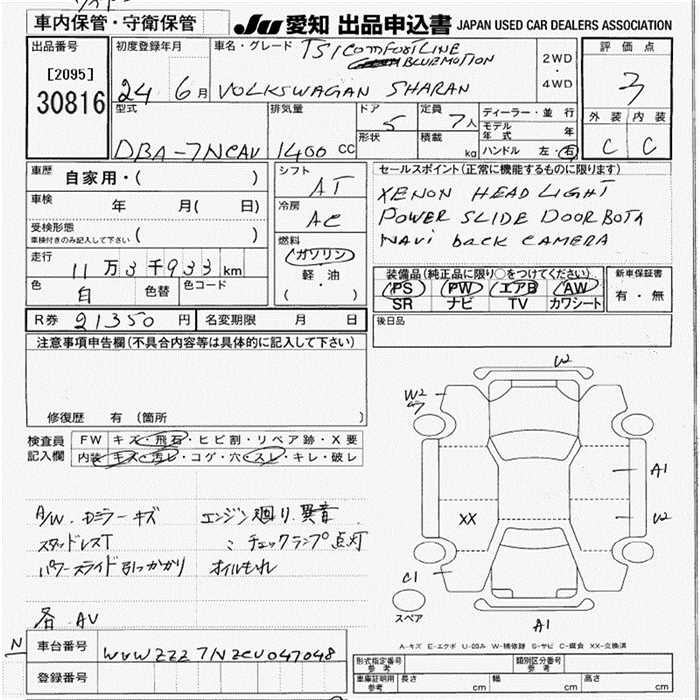 車内保管・守衛保管
JU 愛知 出品申込書 JAPAN USED CAR DEALERS ASSOCIATION
出品番号
[2095]
30816
初度登録年月
24 6月
車名・グレード
TSI COMFORTLINE
BLUEMOTION
VOLKSWAGAN SHARAN
2WD
・
4WD
評価点
3
外装 内装
C C
型式
DBA-7NCAV
排気量
1400 CC
ドア
5
形状
定員
7人
積載
kg
ディーラー・並行
モデル年式 年
ハンドル 左・右
車歴
自家用・( )
車検
年 月( 日)
受検形態
車検付きのみ記入して下さい ( )
走行
11万3千933km
色
白
色替
色コード
シフト
AT
冷房
AC
燃料
ガソリン
軽・油
( )
セールスポイント(正常に機能するものに限ります)
XENON HEAD LIGHT
POWER SLIDE DOOR BOTA
NAVi back CAMERA
装備品(純正品に限り○をつけてください)
PS PW エアB AW
SR ナビ TV カワシート
新車保証書
有・無
R券 21350円
名変期限 月 日
後日品
注意事項申告欄(不具合内容等は具体的に記入して下さい)
修復歴 有 (箇所 )
検査員
記入欄
FW キズ・飛石・ヒビ割・リペア跡・X要
内装 キズ・汚レ・コゲ・穴・スレ・キレ・破レ
A/W. Dミラーキズ
スタッドレスT
パワースライド引っかかり
エンジン廻り異音
: チェックランプ点灯
オイルもれ
各 AV
W2
W2
A1
XX
W2
C1
A1
スペア
A-キズ E-エクボ U-凹み W-補修跡 S-サビ C-腐食 XX-交換済
N
車台番号
WVWZZZ7NZCV047048
登録番号
形式指定番号
参考
類別区分番号
参考
車庫証明用
参考
長さ cm
幅 cm
高さ cm